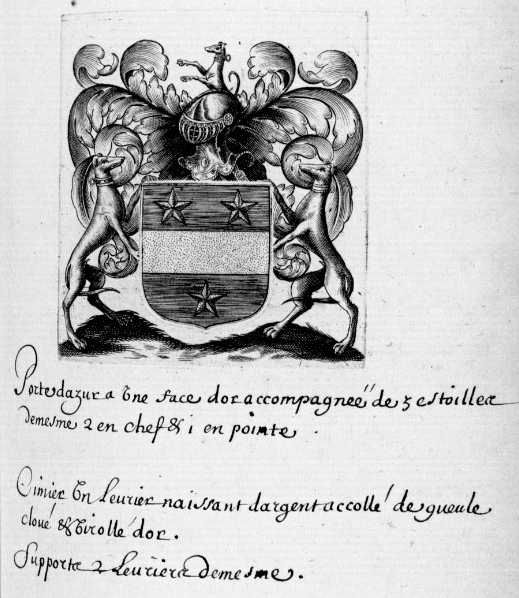 Porte dazur a Une face dor accompagneé de 3 estoilles
demesme 2 en chef & 1 en pointe.
Cimier Un Leurier naissant dargent accollé de gueule
cloué & Virollé dor.
Supports 2 Leuriers demesme.